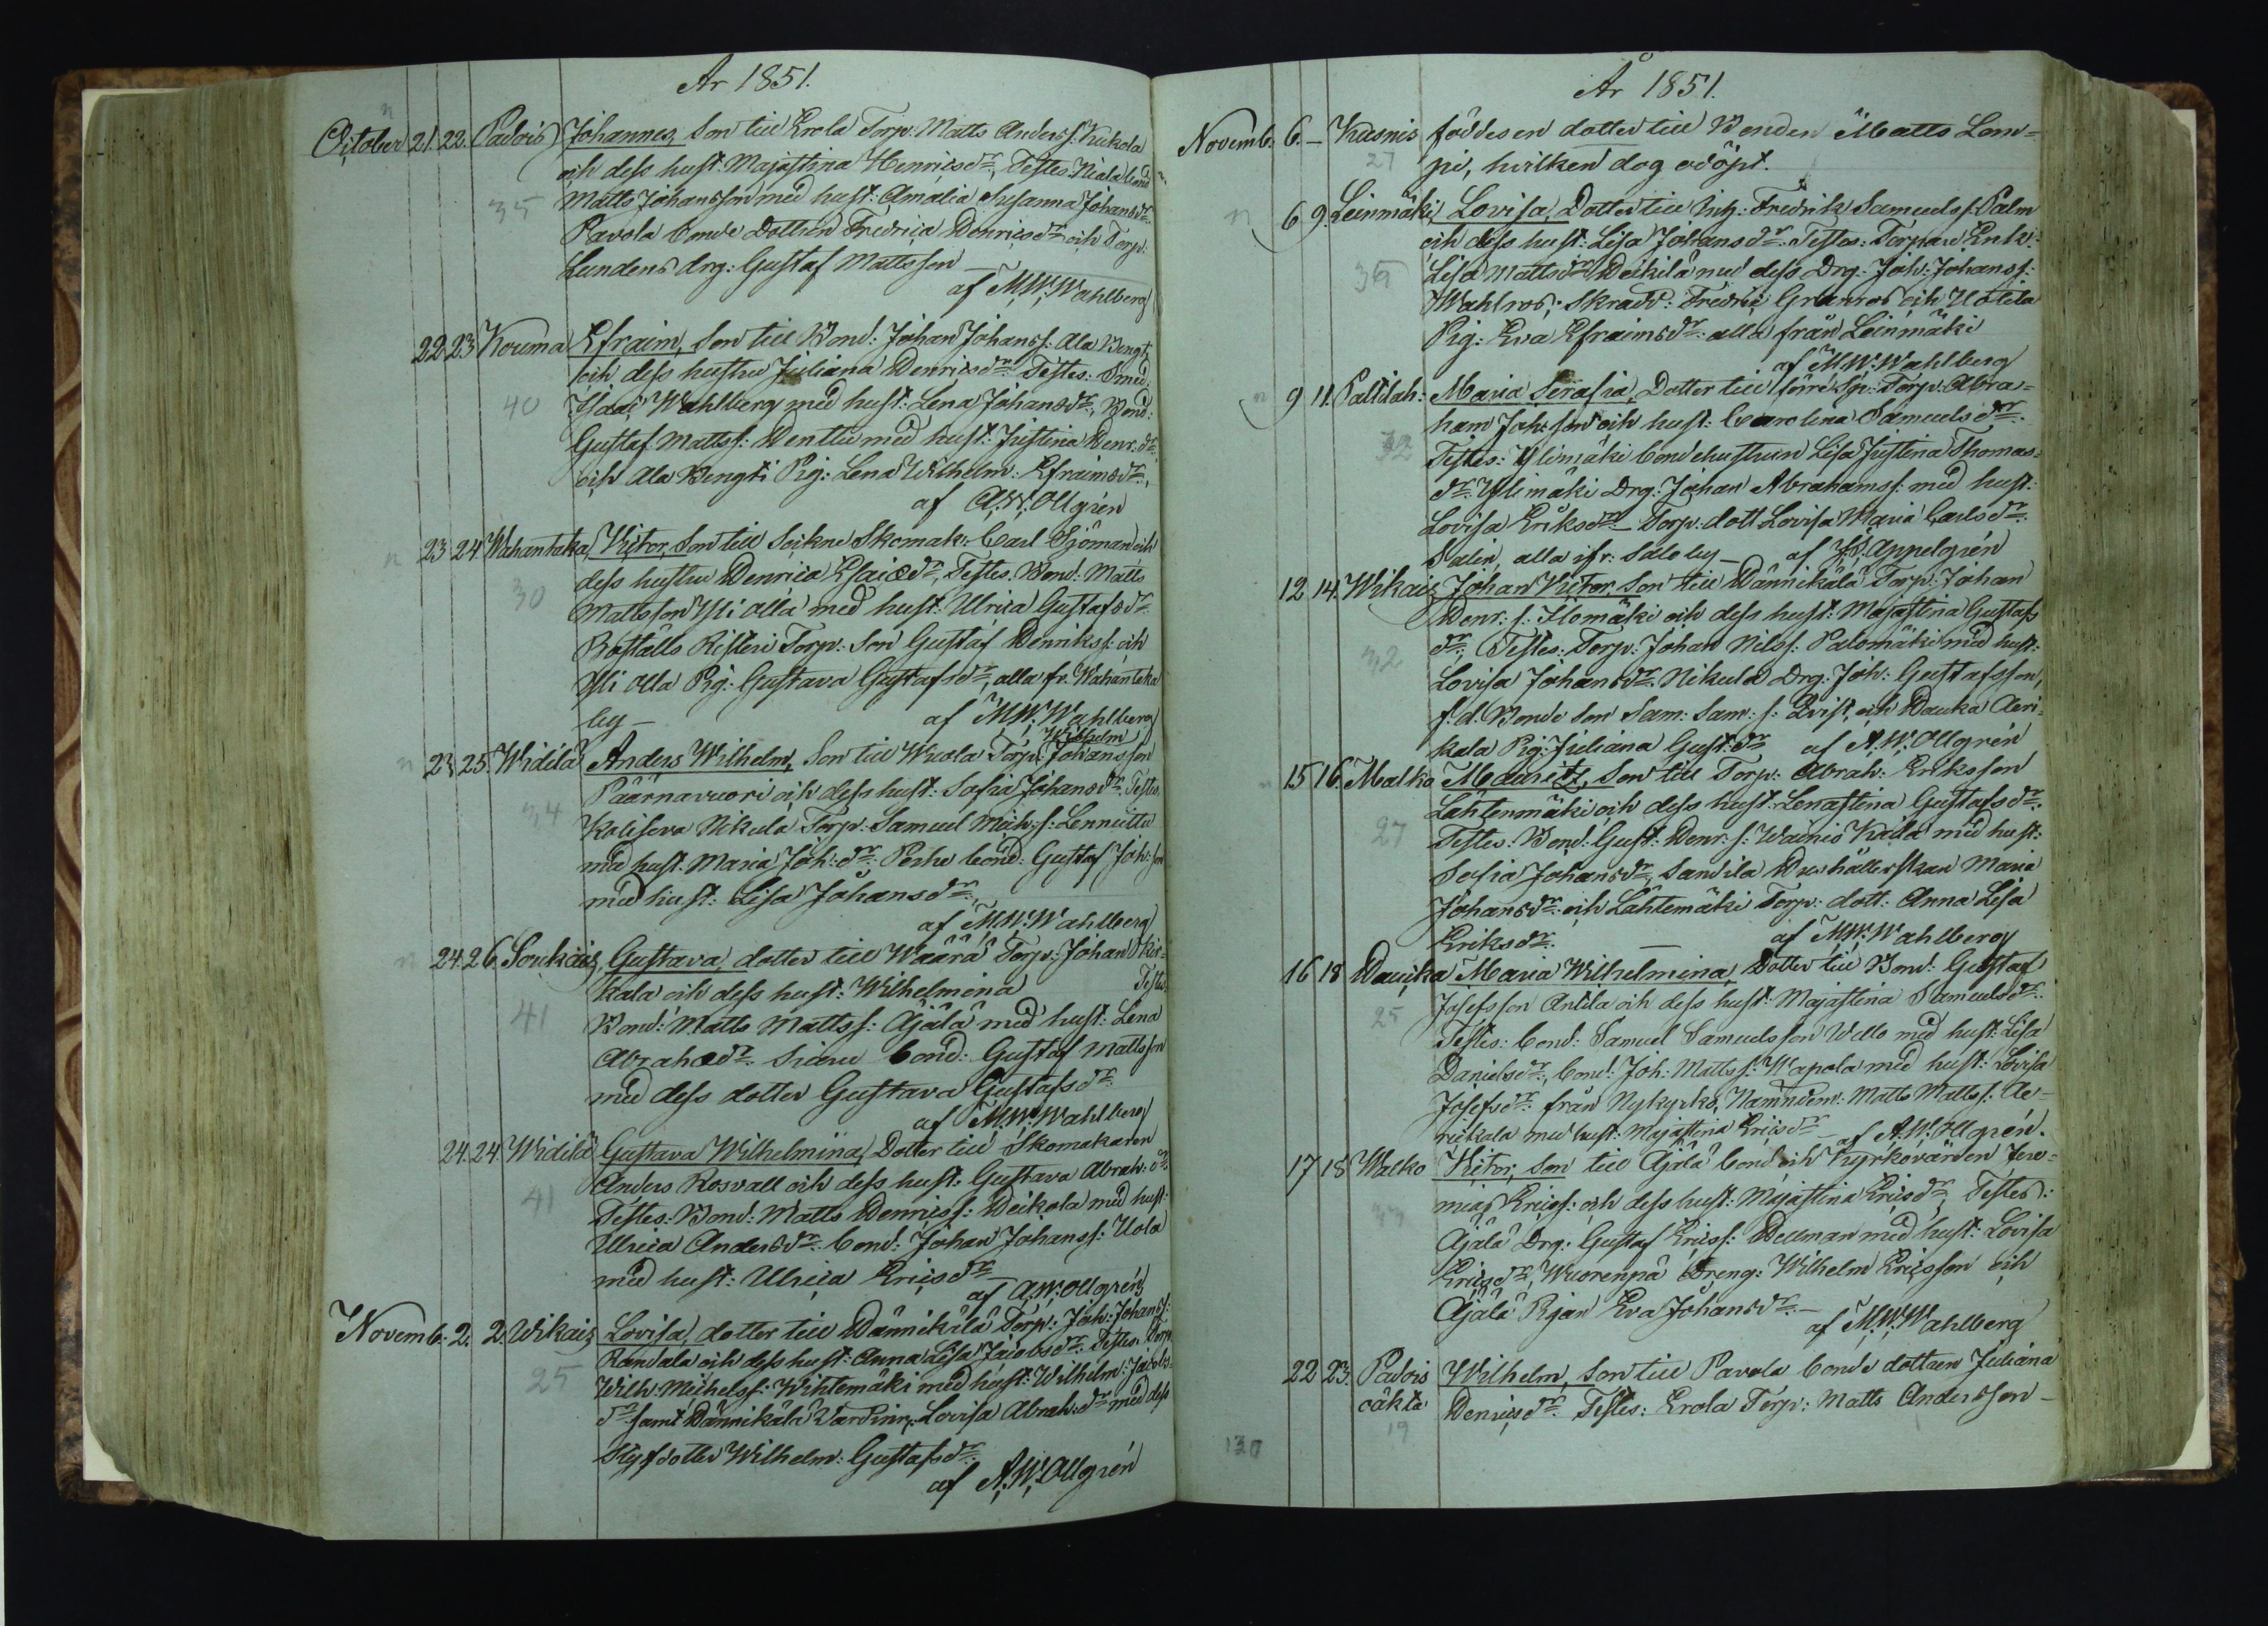 År 1851.
October 21. 22. Padois Johannes, Son till Erola Torp. Matts Anders s. Kukola
och dess hust. Majastina Henricsdr, Testes
35 Matts Johansson med hust: Amalia Susanna Johansdr
Pavola bonde Dottren Fredrica Henricsdr och Torp.
Lundens drg: Gustaf Mattsson
af M.W. Wahlberg
22 23 Kouma Efraim, Son till Bond: Johan Johans s: Ala Bengt
och dess hustru Juliana Henricsdr Testes: Smed:
40 Isaac Wahlberg med hust: Lena Johansdr, Bond:
Gustaf Matts s: Henttu med hust: Justina Henr: dr,
och Ala Bengti Pig: Lena Wilhelm: Efraimsdr,
af A.W. Ollgrén
n 23 24 Wahantaka, Victor, Son till Sockne Skomak: Carl Sjöman och
30 dess hustru Henrica Esaiædr, Testes. Bond: Matts
Mattsson Yli olla med hust: Ulrica Gustafsdr
Boställs Risteri Torp: Son Gustaf Henriks s: och
Yli olla Pig: Gustava Gustafsdr, alla fr. Wahantaka
by – af M.W. Wahlberg
Wilhelm
n 23 25. Widilä Anders Wilhelm, Son till Wuola Torp: Johansson
Päärnavuori och dess hust: Sofia Johansdr. Testes.
34 Kaliseva Nikula Torp: Samuel Mich: s: Lennuttu
med hust: Maria Joh: dr: Perho bond: Gustaf Joh: son
med hust: Lisa Johansdr,
af M.W. Wahlberg
n 24. 26. Soukais, Gustava, dotter till Wäärä Torp: Johan Pir-
kala och dess hust: Wilhelmina Testes
41 Bond: Matts Matts s: Äjälä med hust: Lena
Abrahædr. bond: Gustaf Mattsson
med dess dotter Gustava Gustafsdr
af M.W. Wahlberg
24. 24 Widilä Gustava Wilhelmina, Dotter till Skomakaren
Anders Rosvall och dess hust: Gustava Abrah: dr:
41 Testes: Bond: Matts Henrics s: Heikola med hust:
Ulrica Andersdr. bond: Johan Johans s: Uola
med hust: Ulrica Ericsdr
af A.W. Ollgrén
Novemb. 2. 2. Wikais, Lovisa, dotter till Hännikälä Torp: Joh: Johans s:
Randala och dess hust: Anna Lisa Jacobsdr. Testes. Torp
25 Wilh: Michels s: Wihtemäki med hust: Wilhelm: Jacobs
dr samt Hännikälä Värdinn: Lovisa Abrah: dr med dess
Styfdotter Wilhelm: Gustafsdr
af A.W. Ollgrén
År 1851.
Novemb. 6. – Kusnis föddes en dotter till Bonden Matts Lem=
27 pi, hvilken dog odöpt.
n 6 9. Leinmäki, Lovisa, Dotter till Inh: Fredrik Samuels s. Palm
och dess hust: Lisa Johansdr. Testes: Torpare Enk:
36 Lisa Mattsdr Heikilä med dess Drg: Joh: Johans s:
Wahlros; Skradd: Fredric Granros och Uotila
Pig: Eva Efraimsdr: alla från Leinmäki
af M.W. Wahlberg
n 9 11. Paltilah: Maria Serafia, Dotter till förre Torp: Abra=
ham Joh: son och hust: Carolina Samuelsdr.
32 Testes: Ylimäki bondehustrun Lisa Justina Thomas:
dr. Ylimäki Drg: Johan Abrahams s: med hust:
Lovisa Eriksdr – Torp: dott Lovisa Maria Carlsdr.
Salin, alla ifr: Salo by – af J.S. Appelgrén
12 14. Wikais, Johan Victor, Son till Hännikälä Torp: Johan
Henr: s: Ilomäki och dess hust: Majastina Gustafs
32 dr; Testes: Torp: Johan Nils s: Palomäki med hust:
Lovisa Johansdr. Nikula Drg: Joh: Gustafsson,
f.d. Bonde Son Sam: Sam: s: Qvist, och Hauka Aeri-
kala Pig: Juliana Gust: dr af A.W. Ollgrén
15 16. Malko Mauritz, Son till Torp: Abrah: Eriksson
Lähtenmäki och dess hust: Lenastina Gustafsdr:
27 Testes: Bond: Gust: Henr: s: Wainio Kaila med hust:
Sofia Johansdr, Sandila Hushållerskan Maria
Johansdr: och Lähtemäki Torp: dott: Anna Lisa
Eriksdr. – af M.W. Wahlberg
16 18 Haucka Maria Wilhelmina, Dotter till Bond: Gustaf
25 Josefsson Antila och dess hust: Majastina Samuelsdr:
Testes: bond: Samuel Samuelsson Wello med hust: Lisa
Danielsdr, bond: Joh: Matts s: Wapola med hust: Lovisa
Josefsdr: från Nykyrko, Nämndem: Matts Matts s: Ae-
rickala med hust: Majastina Ericsdr – af A.W. Ollgrén.
17 18 Walko Victor, Son till Äjälä bond och Kyrkovärden Jere=
33 mias Erics s: och dess hust: Majastina Ericsdr, Testes:
Äjälä Drg: Gustaf Erics s: Hellman med hust: Lovisa
Ericsdr, Wuorenpä Dreng: Wilhelm Ericsson och
Äjälä Pigan Eva Johansdr. –
af M.W. Wahlberg
22 23. Padois Wilhelm, Son till Pavola bonde dottren Juliana
oäkta Henricsdr. Testes: Erola Torp: Matts Andersson –
19
130